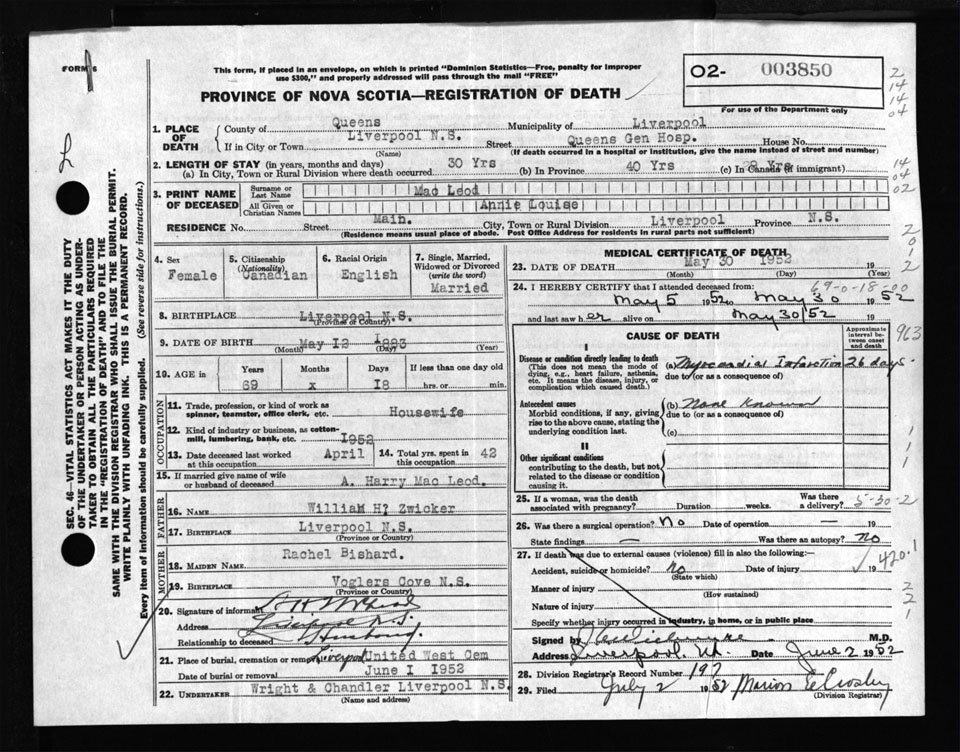 FORM 6
This form, if placed in an envelope, on which is printed "Dominion Statistics—Free, penalty for improper
use $300," and properly addressed will pass through the mail "FREE"
O2- 003850
PROVINCE OF NOVA SCOTIA—REGISTRATION OF DEATH
For use of the Department only
1. PLACE OF DEATH
County of Queens Municipality of Liverpool
If in City or Town Liverpool N.S. Street Queens Gen Hosp. House No.
(Name) (If death occurred in a hospital or institution, give the name instead of street and number)
2. LENGTH OF STAY (in years, months and days)
(a) In City, Town or Rural Division where death occurred 30 Yrs (b) In Province 40 Yrs (c) In Canada (if immigrant) Yrs
3. PRINT NAME OF DECEASED
Surname or Last Name Mac Leod
All Given or Christian Names Annie Louise
RESIDENCE No. Street Main. City, Town or Rural Division Liverpool Province N.S.
(Residence means usual place of abode. Post Office Address for residents in rural parts not sufficient)
4. Sex Female
5. Citizenship (Nationality) Canadian
6. Racial Origin English
7. Single, Married, Widowed or Divorced (write the word) Married
8. BIRTHPLACE Liverpool N.S.
(Province or Country)
9. DATE OF BIRTH May 12 1883
(Month) (Day) (Year)
10. AGE in Years 69 Months x Days 18 If less than one day hrs. or min.
OCCUPATION
11. Trade, profession, or kind of work as spinner, teamster, office clerk, etc. Housewife
12. Kind of industry or business, as cotton-mill, lumbering, bank, etc.
13. Date deceased last worked at this occupation 1952 April
14. Total yrs. spent in this occupation 42
15. If married give name of wife or husband of deceased A. Harry Mac Leod.
FATHER
16. NAME William H. Zwicker
17. BIRTHPLACE Liverpool N.S.
(Province or Country)
MOTHER
18. MAIDEN NAME Rachel Bishard.
19. BIRTHPLACE Voglers Cove N.S.
(Province or Country)
20. Signature of informant
Address Liverpool N.S.
Relationship to deceased Husband.
21. Place of burial, cremation or removal Liverpool United West Cem
Date of burial or removal June 1 1952
22. UNDERTAKER Wright & Chandler Liverpool N.S.
(Name and address)
MEDICAL CERTIFICATE OF DEATH
23. DATE OF DEATH May 30 1952 19
(Month) (Day) (Year)
24. I HEREBY CERTIFY that I attended deceased from: 69-0-18-00
May 5 1952 to May 30 1952
and last saw her alive on May 30/52
CAUSE OF DEATH
Approximate interval between onset and death
963
I
Disease or condition directly leading to death
(This does not mean the mode of dying, e.g., heart failure, asthenia, etc. It means the disease, injury, or complication which caused death.)
(a) Myocardial Infarction 26 days
due to (or as a consequence of)
Antecedent causes
Morbid conditions, if any, giving rise to the above cause, stating the underlying condition last.
(b) None Known
due to (or as a consequence of)
(c)
II
Other significant conditions
contributing to the death, but not related to the disease or condition causing it.
25. If a woman, was the death associated with pregnancy? Duration weeks. Was there a delivery? 5-30-2
26. Was there a surgical operation? No Date of operation — 19
State findings — Was there an autopsy? No
27. If death was due to external causes (violence) fill in also the following:—
Accident, suicide or homicide? No Date of injury 19 420.1
(State which)
Manner of injury
(How sustained)
Nature of injury
Specify whether injury occurred in industry, in home, or in public place
Signed by M.D.
Address Liverpool, N.S. Date June 2 1952
28. Division Registrar's Record Number 197
29. Filed July 2 1952 Marion E Crosby
(Division Registrar)
SEC. 46—VITAL STATISTICS ACT MAKES IT THE DUTY
OF THE UNDERTAKER OR PERSON ACTING AS UNDER-
TAKER TO OBTAIN ALL THE PARTICULARS REQUIRED
IN THE "REGISTRATION OF DEATH" AND TO FILE THE
SAME WITH THE DIVISION REGISTRAR WHO SHALL ISSUE THE BURIAL PERMIT.
WRITE PLAINLY WITH UNFADING INK. THIS IS A PERMANENT RECORD.
Every item of information should be carefully supplied. (See reverse side for instructions.)